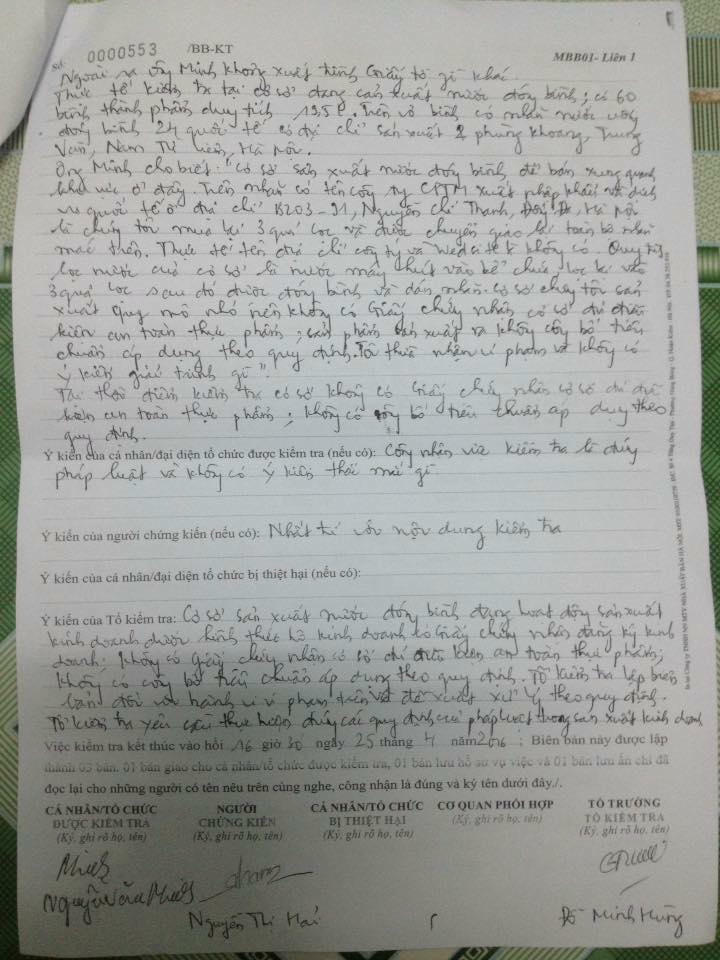 Số: 0000553 /BB-KT MBB01- Liên 1
Ngoài ra ông Minh không xuất trình Giấy tờ gì khác.
Thực tế kiểm tra tại cơ sở đang sản xuất nước đóng bình; có 60
bình thành phẩm dung tích 19,5l. Trên vỏ bình có nhãn nước uống
đóng bình 24 quốc tế có địa chỉ sản xuất 2 phùng khoang, Trung
Văn, Nam Từ Liêm, Hà Nội.
Ông Minh cho biết: "Cơ sở sản xuất nước đóng bình để bán xung quanh
khu vực ở đây. Trên nhãn có tên công ty CPTM xuất nhập khẩu và dịch
vụ quốc tế ở địa chỉ B203-91, Nguyễn Chí Thanh, Đống Đa, Hà Nội
là chúng tôi mua lại 3 quả lọc và được chuyển giao lại toàn bộ nhãn
mác trên. Thực tế tên địa chỉ công ty và Website là không có. Quy trình
lọc nước của cơ sở là nước máy hút vào bể chứa, lọc vào
3 quả lọc sau đó được đóng bình và dán nhãn. Cơ sở chúng tôi sản
xuất quy mô nhỏ nên không có Giấy chứng nhận cơ sở đủ điều
kiện an toàn thực phẩm; sản phẩm sản xuất ra không công bố tiêu
chuẩn áp dụng theo quy định. Tôi thừa nhận vi phạm và không có
ý kiến giải trình gì".
Tại thời điểm kiểm tra cơ sở không có Giấy chứng nhận cơ sở đủ điều
kiện an toàn thực phẩm; không có công bố tiêu chuẩn áp dụng theo
quy định.
Ý kiến của cá nhân/đại diện tổ chức được kiểm tra (nếu có): Công nhận việc kiểm tra là đúng
pháp luật và không có ý kiến thắc mắc gì.
Ý kiến của người chứng kiến (nếu có): Nhất trí với nội dung kiểm tra
Ý kiến của cá nhân/đại diện tổ chức bị thiệt hại (nếu có):
Ý kiến của Tổ kiểm tra: Cơ sở sản xuất nước đóng bình đang hoạt động sản xuất
kinh doanh dưới hình thức hộ kinh doanh có Giấy chứng nhận đăng ký kinh
doanh; không có giấy chứng nhận cơ sở đủ điều kiện an toàn thực phẩm;
không có công bố tiêu chuẩn áp dụng theo quy định. Tổ kiểm tra lập biên
bản đối với hành vi vi phạm trên và đề xuất xử lý theo quy định.
Tổ kiểm tra yêu cầu thực hiện đúng các quy định của pháp luật trong sản xuất kinh doanh
Việc kiểm tra kết thúc vào hồi 16 giờ 30 ngày 25 tháng 4 năm 2016; Biên bản này được lập
thành 03 bản. 01 bản giao cho cá nhân/tổ chức được kiểm tra, 01 bản lưu hồ sơ vụ việc và 01 bản lưu ấn chỉ đã
đọc lại cho những người có tên nêu trên cùng nghe, công nhận là đúng và ký tên dưới đây./.
CÁ NHÂN/TỔ CHỨC ĐƯỢC KIỂM TRA (Ký, ghi rõ họ, tên)
NGƯỜI CHỨNG KIẾN (Ký, ghi rõ họ, tên)
CÁ NHÂN/TỔ CHỨC BỊ THIỆT HẠI (Ký, ghi rõ họ, tên)
CƠ QUAN PHỐI HỢP (Ký, ghi rõ họ, tên)
TỔ TRƯỞNG TỔ KIỂM TRA (Ký, ghi rõ họ, tên)
Minh
Nguyễn Văn Minh
Nguyễn Thị Hải
Đỗ Minh Hùng